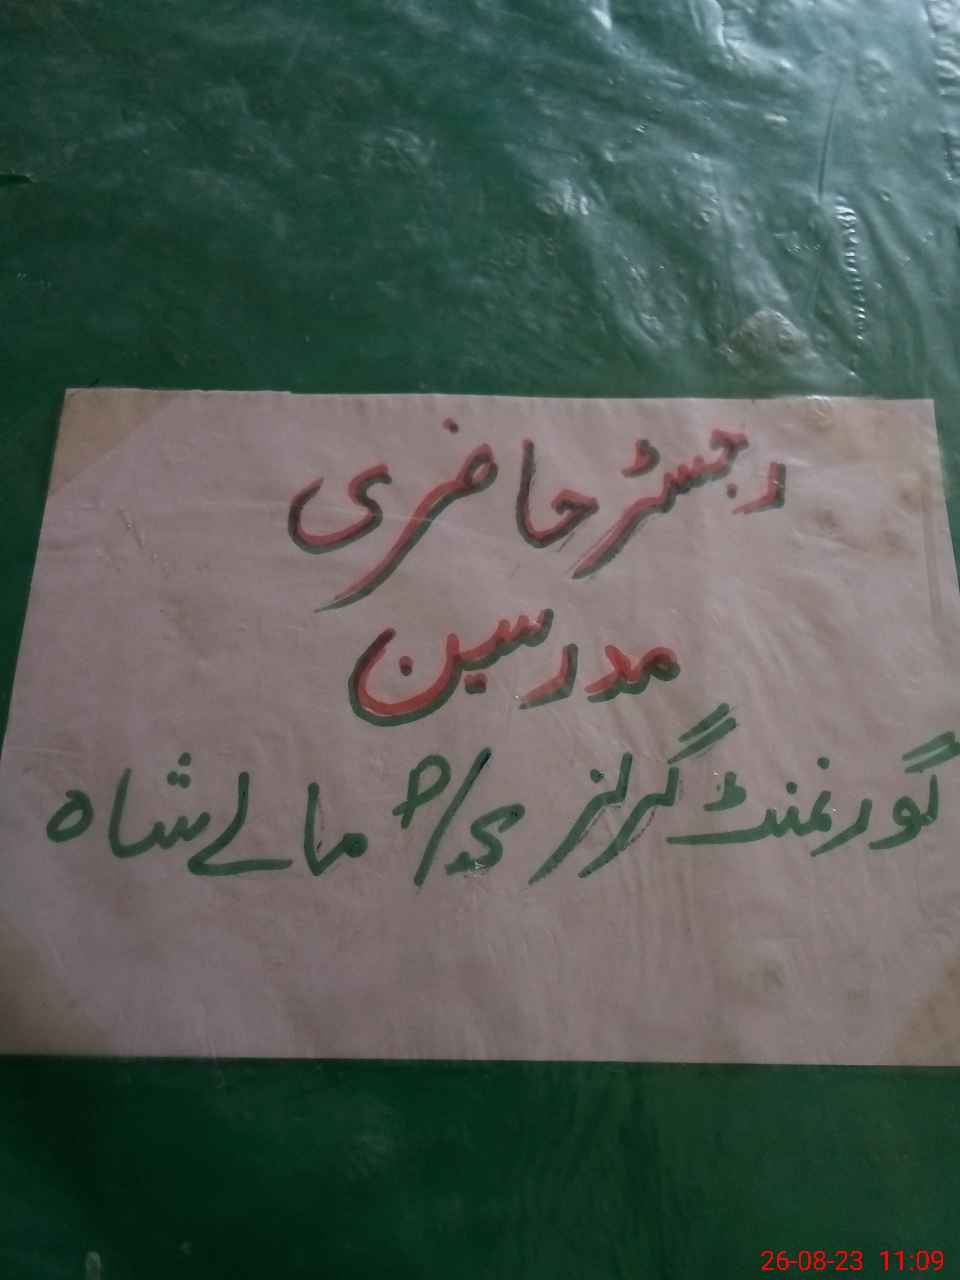 رجسٹر حاضری
مدرسین
گورنمنٹ گرلز مالے شاہ
26-08-23 11:09